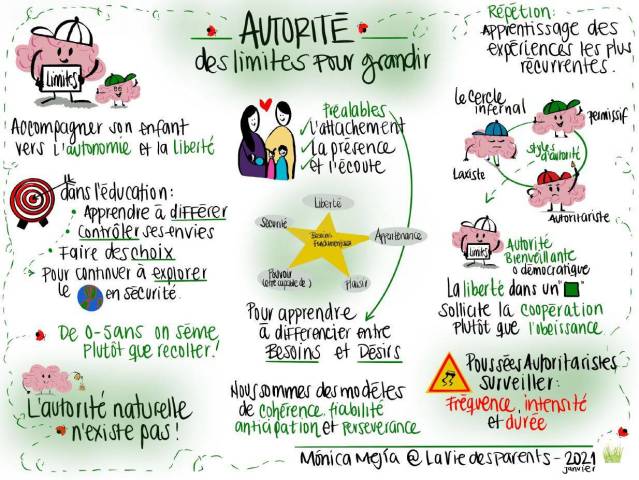 AUTORITÉ
des limites pour grandir
Limites
Accompagner son enfant
vers l'autonomie et la liberté
dans l'éducation:
• Apprendre à différer
• Contrôler ses envies
• Faire des choix
Pour continuer à explorer
le en sécurité.
De 0-5ans on sème
Plutôt que recolter!
L'autorité naturelle
n'existe pas!
Préalables
✓ L'attachement
✓ La présence
et l'écoute
Liberté
Sécurité
Besoins
Fondamentaux
Appartenance
Pouvoir
(être capable de)
Plaisir
Pour apprendre
à differencier entre
Besoins et Désirs
Nous sommes des modèles
de cohérence, fiabilité
anticipation et perseverance
Répétion:
Apprentissage des
expériences les plus
récurrentes.
Le cercle
infernal
permissif
styles
d'autorité
Laxiste
Autoritariste
Limites
Autorité
Bienveillante
o démocratique
La liberté dans un " "
Sollicite la coopération
Plutôt que l'obeissance
Poussées Autoritaristes
Surveiller:
Fréquence, intensité
et durée
Mónica Mejía @ LaViedesParents - 2021
janvier